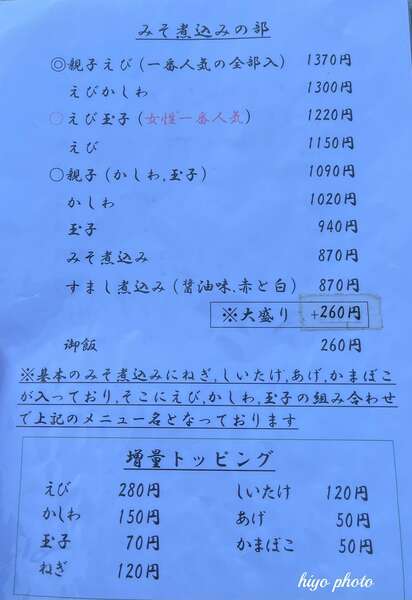 みそ煮込みの部
◎親子えび(一番人気の全部入) 1370円
えびかしわ 1300円
○えび玉子(女性一番人気) 1220円
えび 1150円
○親子(かしわ,玉子) 1090円
かしわ 1020円
玉子 940円
みそ煮込み 870円
すまし煮込み(醤油味.赤と白) 870円
※大盛り +260円
御飯 260円
※基本のみそ煮込みにねぎ,しいたけ,あげ,かまぼこ
が入っており,そこにえび,かしわ,玉子の組み合わせ
で上記のメニュー名となっております
増量トッピング
えび 280円 しいたけ 120円
かしわ 150円 あげ 50円
玉子 70円 かまぼこ 50円
ねぎ 120円
hiyo photo